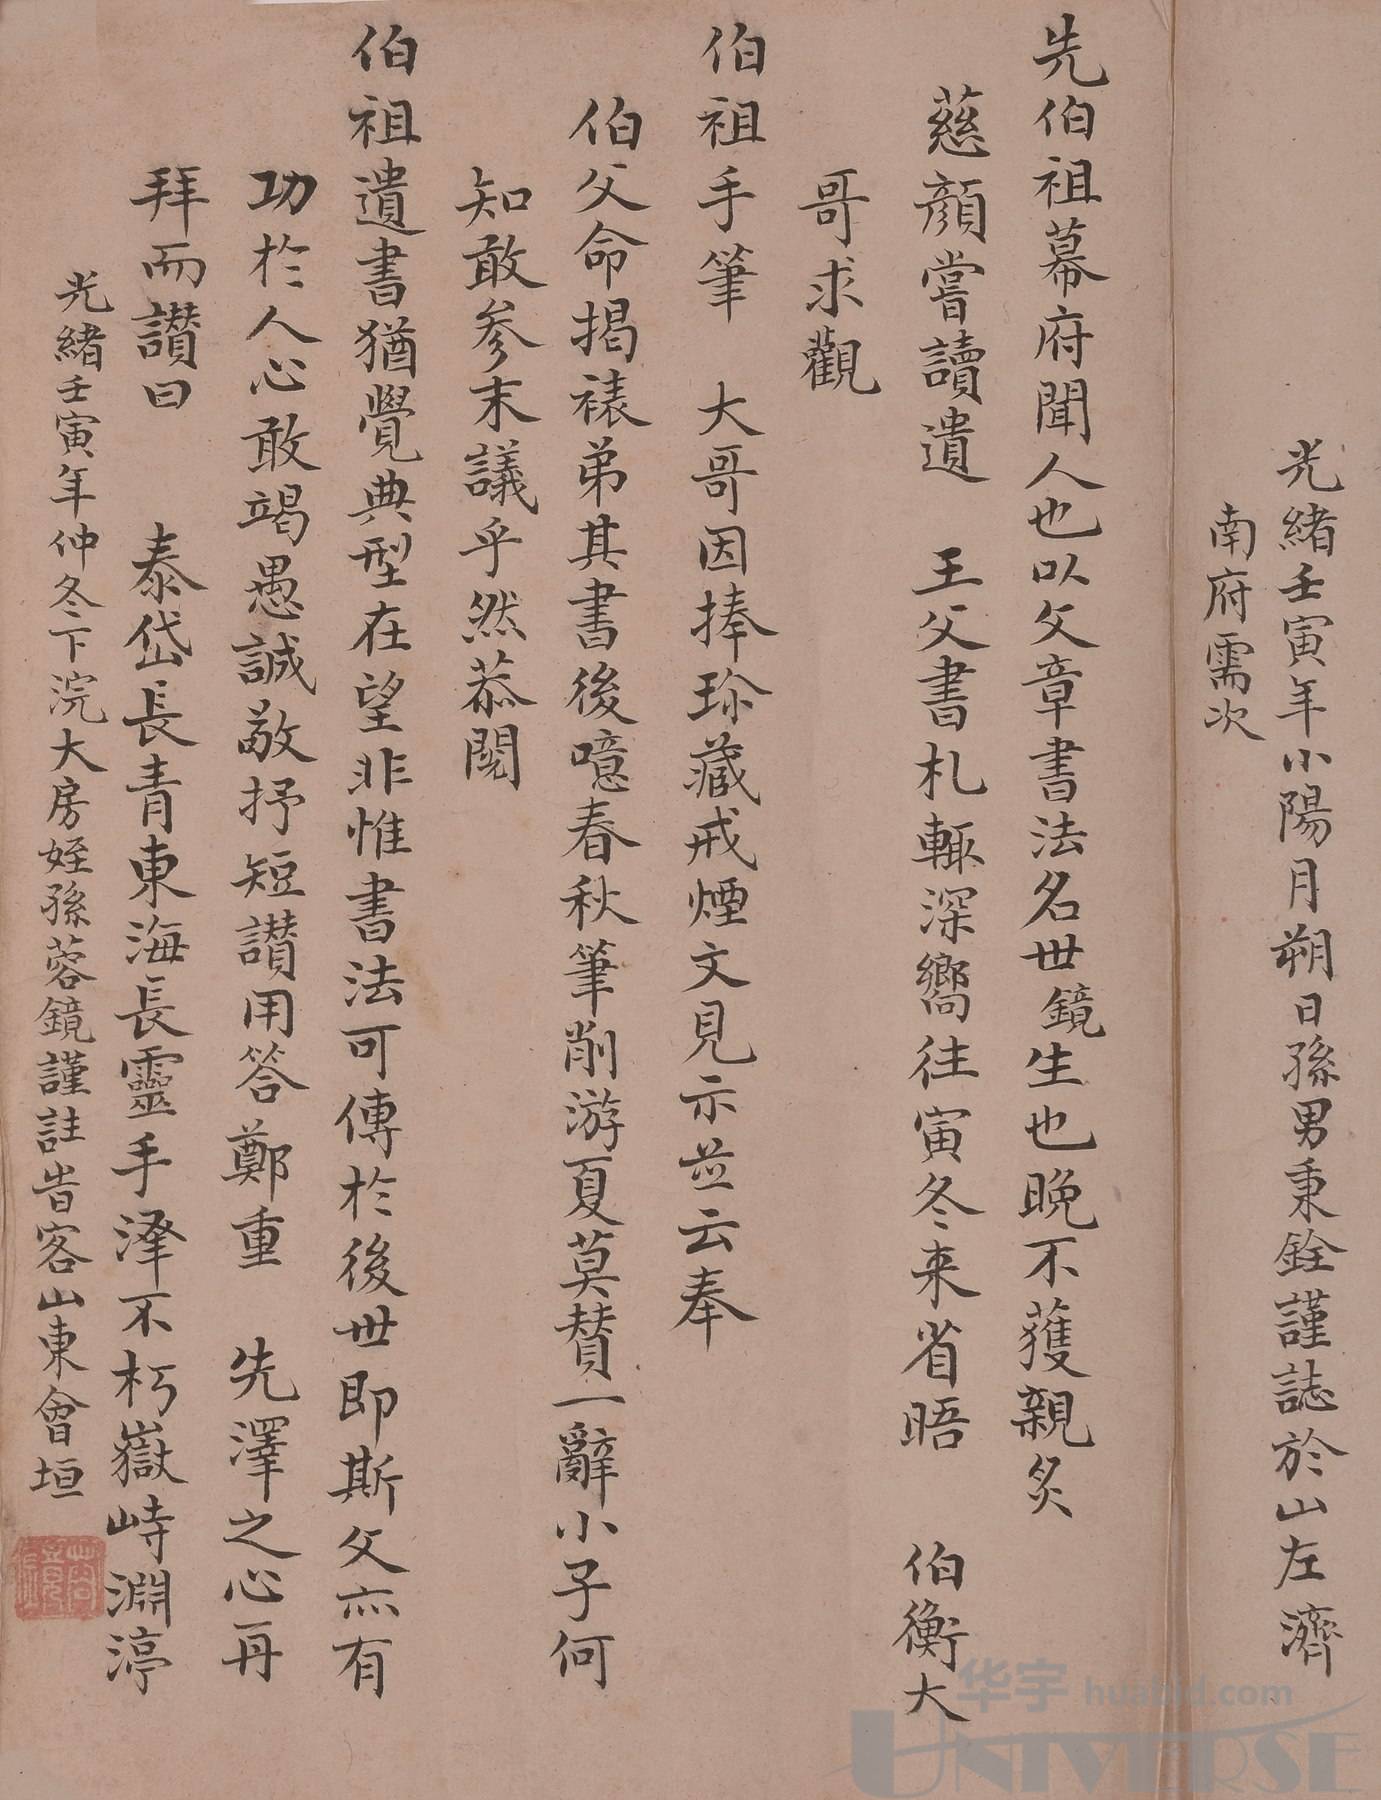 光緒壬寅年小陽月朔日孫男秉銓謹誌於山左濟
南府需次
先伯祖幕府聞人也以文章書法名世鏡生也晚不獲親炙
慈顏嘗讀遺 王父書札輒深嚮往寅冬来省晤 伯衡大
哥求觀
伯祖手筆 大哥因捧珍藏戒煙文見示並云奉
伯父命揭裱弟其書後噫春秋筆削游夏莫贊一辭小子何
知敢參末議乎然恭閱
伯祖遺書猶覺典型在望非惟書法可傳於後世即斯文亦有
功於人心敢竭愚誠敬抒短讃用答鄭重 先澤之心再
拜而讃曰 泰岱長青東海長靈手澤不朽嶽峙淵渟
光緒壬寅年仲冬下浣大房姪孫蓉鏡謹註旹客山東會垣
华宇 huabid.com
UNIVERSE